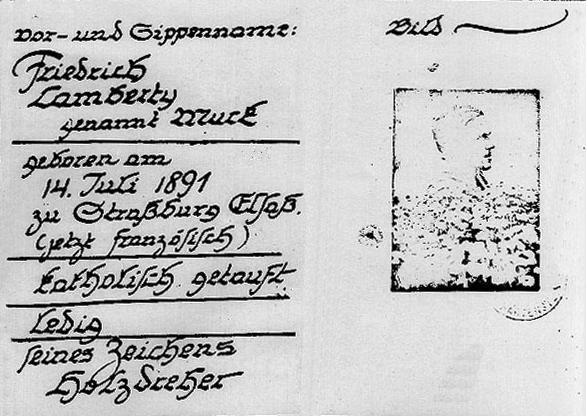 Vor- und Sippenname:
Friedrich
Lamberty
genannt Muck
geboren am
14. Juli 1891
zu Straßburg Elsaß.
(jetzt französisch)
katholisch getauft
ledig
seines Zeichens
Holzdreher
Bild